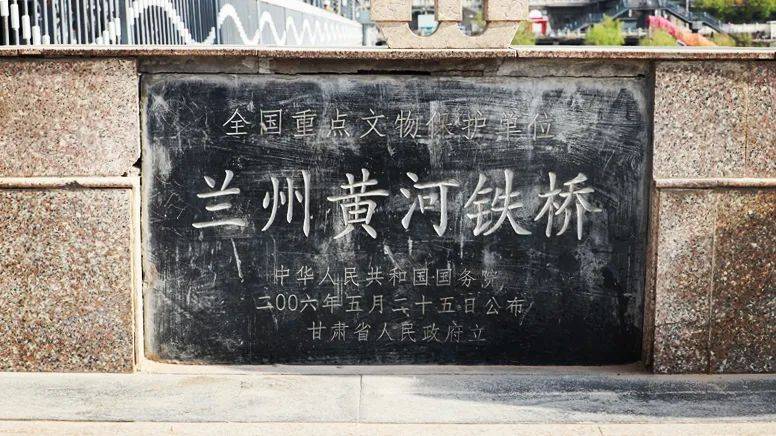 全国重点文物保护单位
兰州黄河铁桥
中华人民共和国国务院
二00六年五月二十五日公布
甘肃省人民政府立